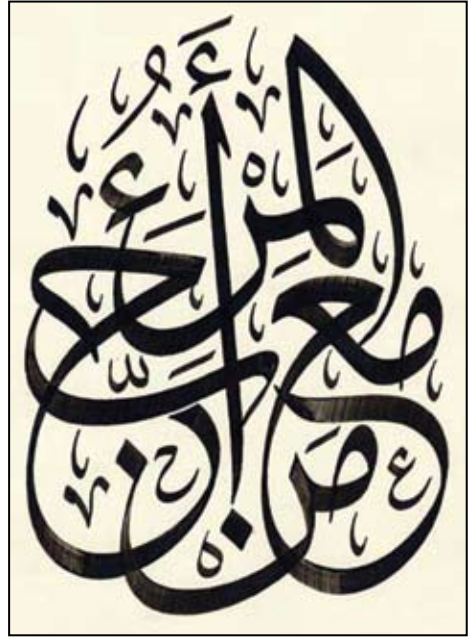 المَرْءُ مَعَ مَنْ أَحَبَّ